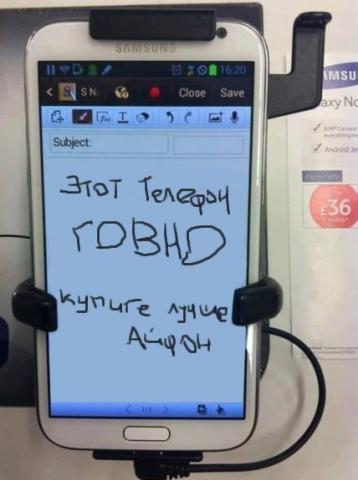 SAMSUNG
16:20
S N
Close
Save
Subject:
этот телефон
говно
купите лучше
Айфон
1/1
AMSUNG
axy No
8MP Camera
Android Je
£36